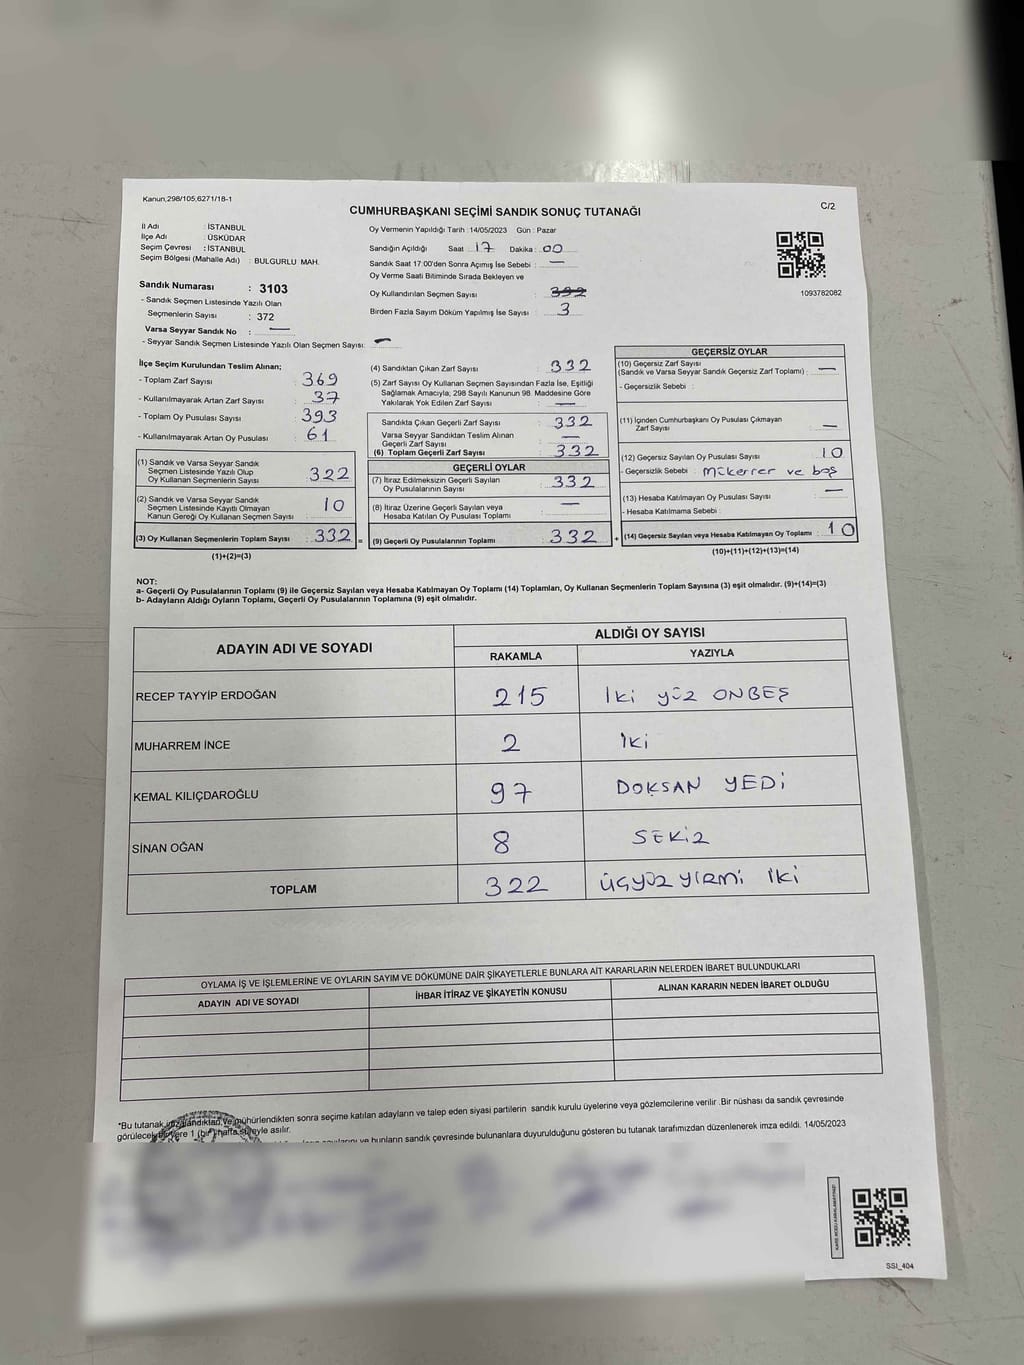 Kanun,298/105,6271/18-1
C/2
CUMHURBAŞKANI SEÇİMİ SANDIK SONUÇ TUTANAĞI
İl Adı : İSTANBUL
İlçe Adı : ÜSKÜDAR
Seçim Çevresi : İSTANBUL
Seçim Bölgesi (Mahalle Adı) : BULGURLU MAH.
Sandık Numarası : 3103
- Sandık Seçmen Listesinde Yazılı Olan
Seçmenlerin Sayısı : 372
Varsa Seyyar Sandık No : —
- Seyyar Sandık Seçmen Listesinde Yazılı Olan Seçmen Sayısı: —
Oy Vermenin Yapıldığı Tarih :14/05/2023 Gün : Pazar
Sandığın Açıldığı Saat 17 Dakika : 00
Sandık Saat 17:00'den Sonra Açımış İse Sebebi : —
Oy Verme Saati Bitiminde Sırada Bekleyen ve
Oy Kullandırılan Seçmen Sayısı : 332
Birden Fazla Sayım Döküm Yapılmış İse Sayısı : 3
1093782082
İlçe Seçim Kurulundan Teslim Alınan;
- Toplam Zarf Sayısı : 369
- Kullanılmayarak Artan Zarf Sayısı : 37
- Toplam Oy Pusulası Sayısı : 393
- Kullanılmayarak Artan Oy Pusulası : 61
(1) Sandık ve Varsa Seyyar Sandık
Seçmen Listesinde Yazılı Olup
Oy Kullanan Seçmenlerin Sayısı : 322
(2) Sandık ve Varsa Seyyar Sandık
Seçmen Listesinde Kayıtlı Olmayan
Kanun Gereği Oy Kullanan Seçmen Sayısı : 10
(3) Oy Kullanan Seçmenlerin Toplam Sayısı : 332 =
(1)+(2)=(3)
(4) Sandıktan Çıkan Zarf Sayısı : 332
(5) Zarf Sayısı Oy Kullanan Seçmen Sayısından Fazla İse, Eşitliği
Sağlamak Amacıyla; 298 Sayılı Kanunun 98. Maddesine Göre
Yakılarak Yok Edilen Zarf Sayısı : —
Sandıkta Çıkan Geçerli Zarf Sayısı : 332
Varsa Seyyar Sandıktan Teslim Alınan
Geçerli Zarf Sayısı : —
(6) Toplam Geçerli Zarf Sayısı : 332
GEÇERLİ OYLAR
(7) İtiraz Edilmeksizin Geçerli Sayılan
Oy Pusulalarının Sayısı : 332
(8) İtiraz Üzerine Geçerli Sayılan veya
Hesaba Katılan Oy Pusulası Toplamı : —
(9) Geçerli Oy Pusulalarının Toplamı : 332 +
GEÇERSİZ OYLAR
(10) Geçersiz Zarf Sayısı
(Sandık ve Varsa Seyyar Sandık Geçersiz Zarf Toplamı) : —
- Geçersizlik Sebebi :
(11) İçinden Cumhurbaşkanı Oy Pusulası Çıkmayan
Zarf Sayısı : —
(12) Geçersiz Sayılan Oy Pusulası Sayısı : 10
- Geçersizlik Sebebi : mükerrer ve boş
(13) Hesaba Katılmayan Oy Pusulası Sayısı : —
- Hesaba Katılmama Sebebi :
(14) Geçersiz Sayılan veya Hesaba Katılmayan Oy Toplamı : 10
(10)+(11)+(12)+(13)=(14)
NOT:
a- Geçerli Oy Pusulalarının Toplamı (9) ile Geçersiz Sayılan veya Hesaba Katılmayan Oy Toplamı (14) Toplamları, Oy Kullanan Seçmenlerin Toplam Sayısına (3) eşit olmalıdır. (9)+(14)=(3)
b- Adayların Aldığı Oyların Toplamı, Geçerli Oy Pusulalarının Toplamına (9) eşit olmalıdır.
ADAYIN ADI VE SOYADI
ALDIĞI OY SAYISI
RAKAMLA YAZIYLA
RECEP TAYYİP ERDOĞAN 215 İki yüz ONBEŞ
MUHARREM İNCE 2 İki
KEMAL KILIÇDAROĞLU 97 DOKSAN YEDİ
SİNAN OĞAN 8 SEKİZ
TOPLAM 322 ÜÇYÜZ YİRMİ İKİ
OYLAMA İŞ VE İŞLEMLERİNE VE OYLARIN SAYIM VE DÖKÜMÜNE DAİR ŞİKAYETLERLE BUNLARA AİT KARARLARIN NELERDEN İBARET BULUNDUKLARI
ADAYIN ADI VE SOYADI İHBAR İTİRAZ VE ŞİKAYETİN KONUSU ALINAN KARARIN NEDEN İBARET OLDUĞU
*Bu tutanak, imzalandıktan ve mühürlendikten sonra seçime katılan adayların ve talep eden siyasi partilerin sandık kurulu üyelerine veya gözlemcilerine verilir .Bir nüshası da sandık çevresinde
görülecek bir yere 1 (bir) hafta süreyle asılır.
ve bunların sandık çevresinde bulunanlara duyurulduğunu gösteren bu tutanak tarafımızdan düzenlenerek imza edildi. 14/05/2023
SSI_404